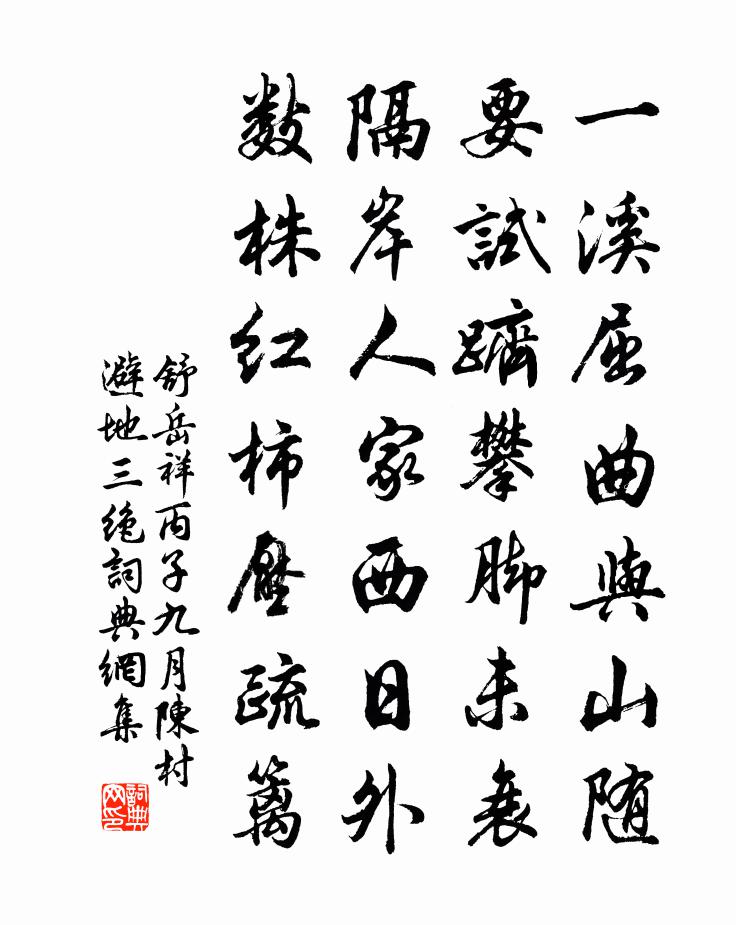 一溪屈曲與山随
要試躋攀脚未衰
隔岸人家西日外
数株红柿壓疏篱
舒岳祥丙子九月陳村
避地三绝詞典網集
詞典网印